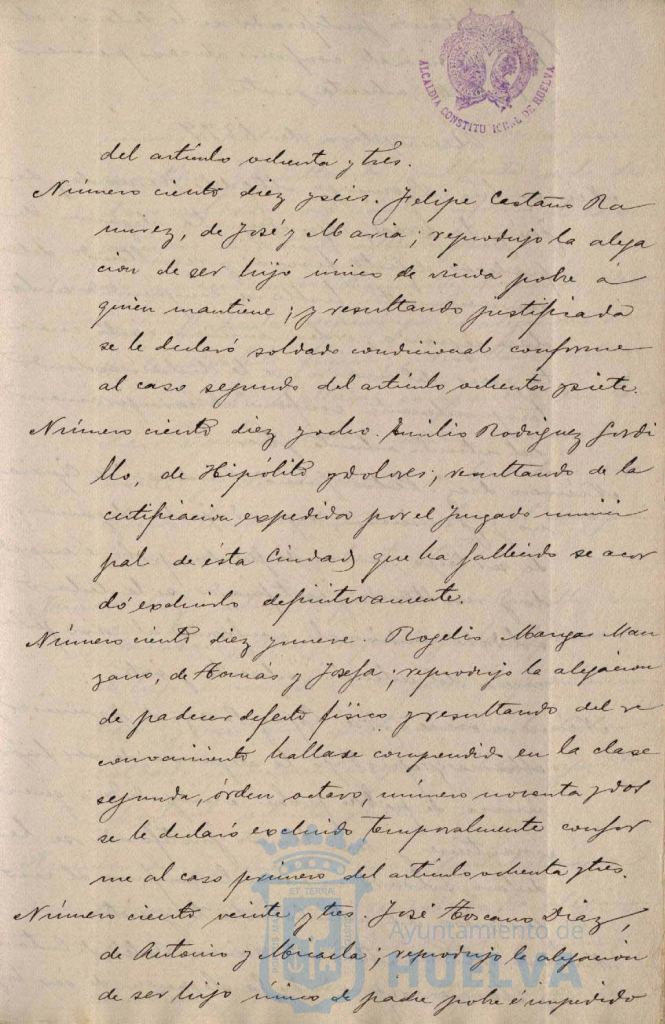 ALCALDIA CONSTITUCIONAL DE HUELVA
del artículo ochenta y tres.
Número ciento diez y seis. Felipe Castaño Ra
mirez, de José y Maria; reprodujo la alega
cion de ser hijo único de viuda pobre á
quien mantiene; y resultando justificada
se le declaró soldado condicional conforme
al caso segundo del artículo ochenta y siete.
Número ciento diez y ocho. Emilio Rodriguez Gordi
llo, de Hipólito y Dolores; resultando de la
certificacion expedida por el Juzgado munici
pal de ésta Ciudad, que ha fallecido se acor
dó excluirlo definitivamente.
Número ciento diez y nueve. Rogelio Margas Man
zano, de Tomás y Josefa; reprodujo la alegacion
de padecer defecto físico y resultando del re
conocimiento hallase comprendido en la clase
segunda, órden octavo, número noventa y dos
se le declaró excluido temporalmente confor
me al caso primero del artículo ochenta y tres.
Número ciento veinte y tres. José Toscano Diaz,
de Antonio y Micaela; reprodujo la alegacion
de ser hijo único de padre pobre é impedido
Ayuntamiento de
HUELVA